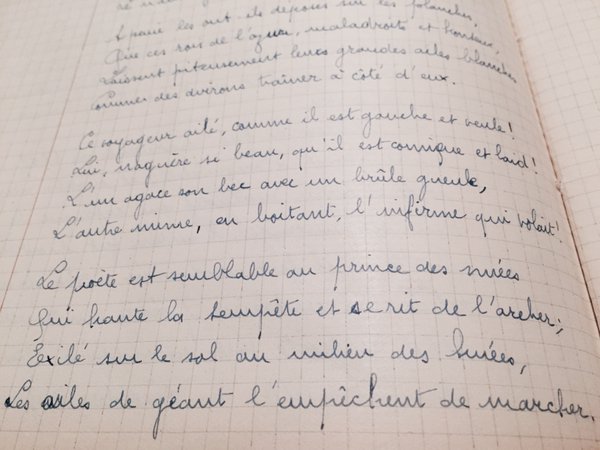 A peine les ont-ils déposés sur les planches,
Que ces rois de l'azur, maladroits et honteux,
Laissent piteusement leurs grandes ailes blanches
Comme des avirons traîner à côté d'eux.
Ce voyageur ailé, comme il est gauche et veule!
Lui, naguère si beau, qu'il est comique et laid!
L'un agace son bec avec un brûle gueule,
L'autre mime, en boitant, l'infirme qui volait!
Le poète est semblable au prince des nuées
Qui hante la tempête et se rit de l'archer;
Exilé sur le sol au milieu des huées,
Les ailes de géant l'empêchent de marcher.